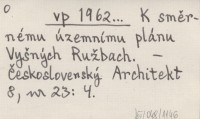 o
vp 1962... K směr-
nému územnímu plánu
Vyšných Ružbach. –
Československý Architekt
8, no 23: 4.